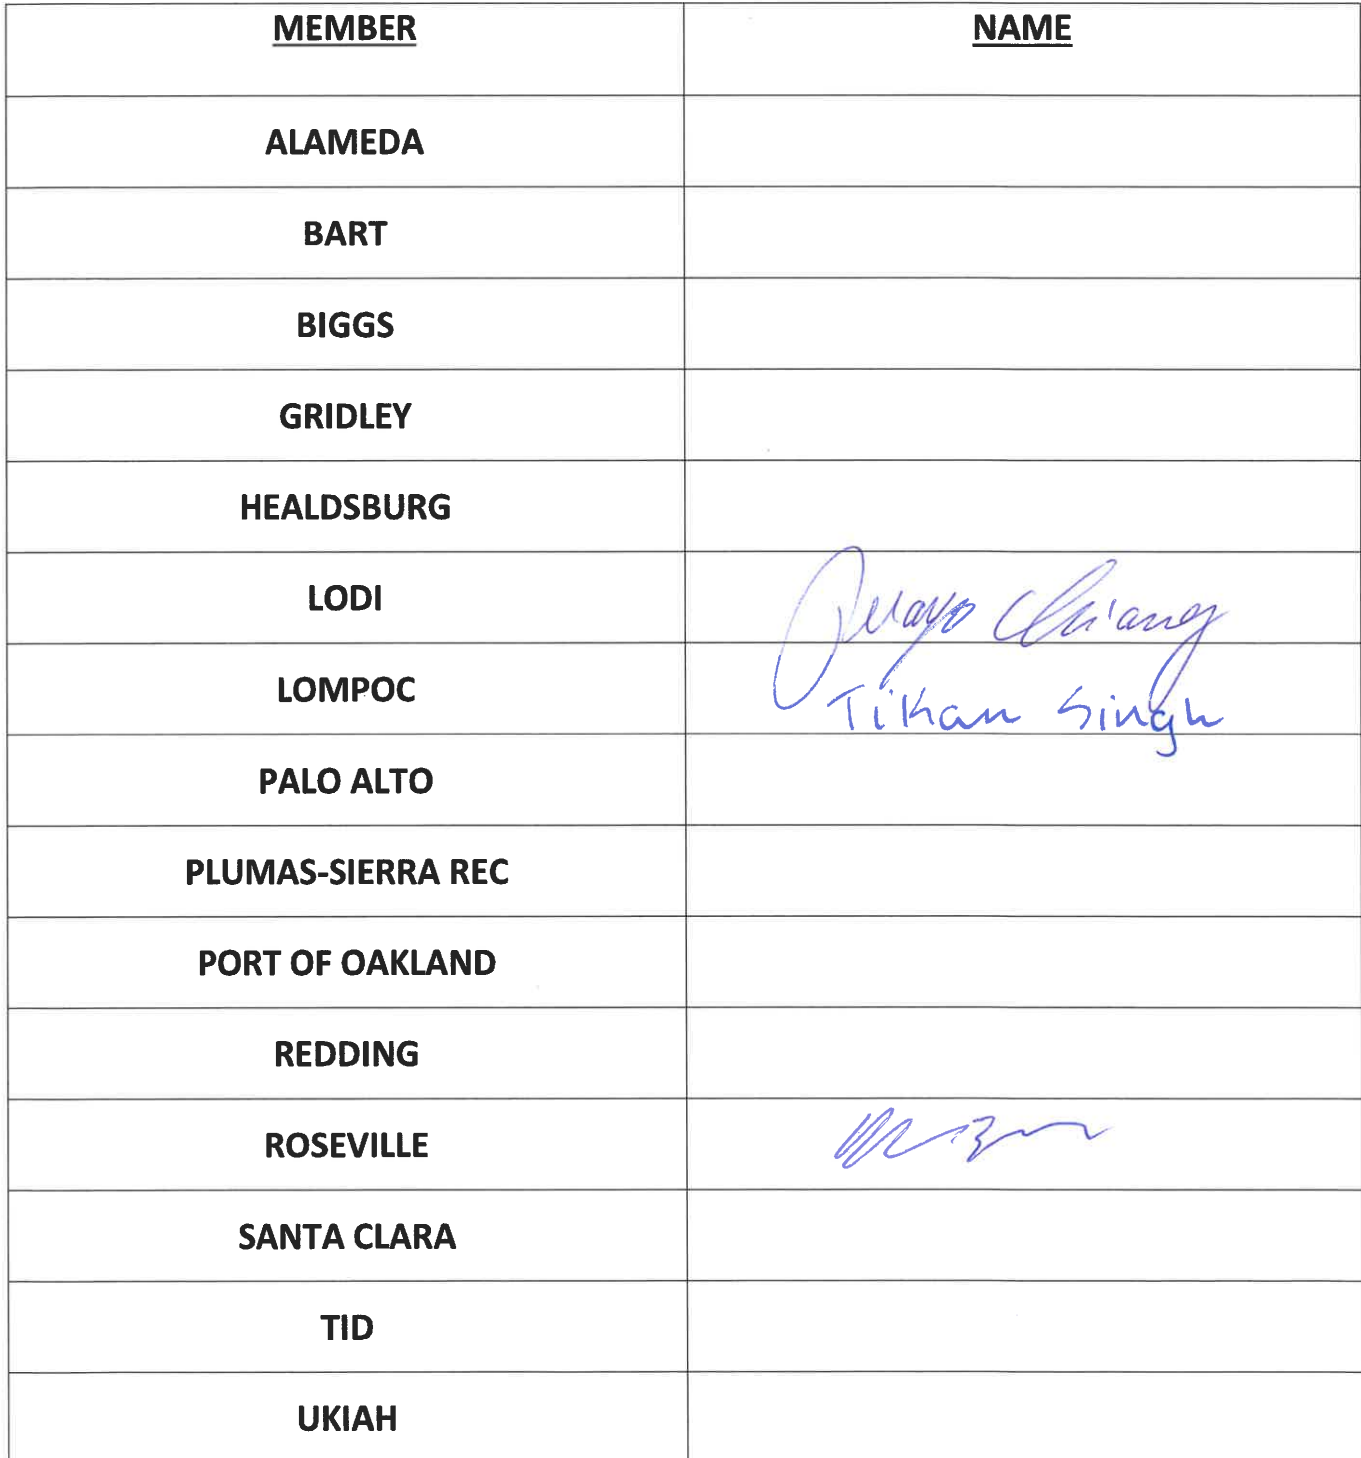 MEMBER NAME
ALAMEDA
BART
BIGGS
GRIDLEY
HEALDSBURG
LODI Chiang
LOMPOC Tikan Singh
PALO ALTO
PLUMAS-SIERRA REC
PORT OF OAKLAND
REDDING
ROSEVILLE
SANTA CLARA
TID
UKIAH